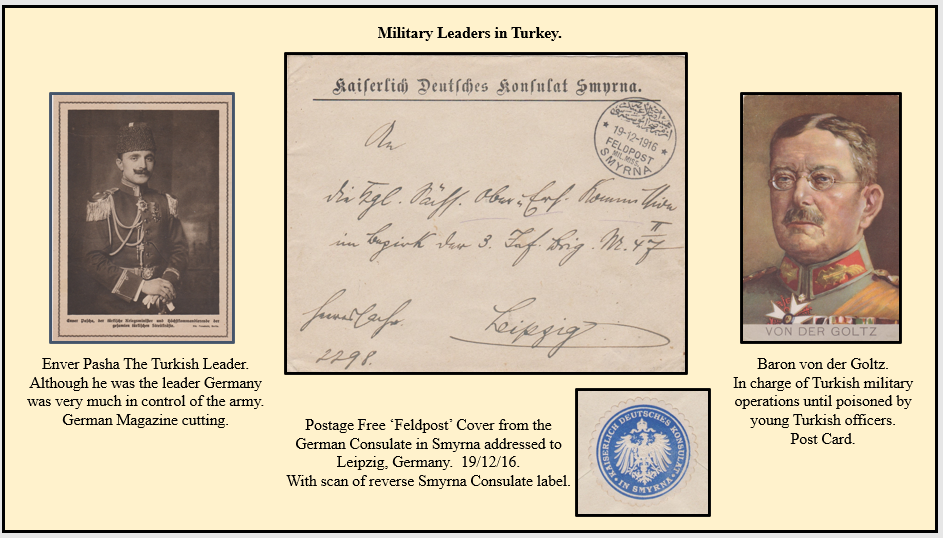 Military Leaders in Turkey.
Kaiserlich Deutsches Konsulat Smyrna.
19-12-1916
FELDPOST
MIL. MISS.
SMYRNA
An
die Kgl. Sächs. Ober-Ers. Kommission
im Bezirk der 3. Inf. Brig. Nr. 47
II
Leipzig
2298.
Enver Pascha, der türkische Kriegsminister und Höchstkommandierende der
gesamten türkischen Streitkräfte.
VON DER GOLTZ
Enver Pasha The Turkish Leader.
Although he was the leader Germany
was very much in control of the army.
German Magazine cutting.
Postage Free ‘Feldpost’ Cover from the
German Consulate in Smyrna addressed to
Leipzig, Germany.  19/12/16.
With scan of reverse Smyrna Consulate label.
KAISERLICH DEUTSCHES KONSULAT
IN SMYRNA
Baron von der Goltz.
In charge of Turkish military
operations until poisoned by
young Turkish officers.
Post Card.